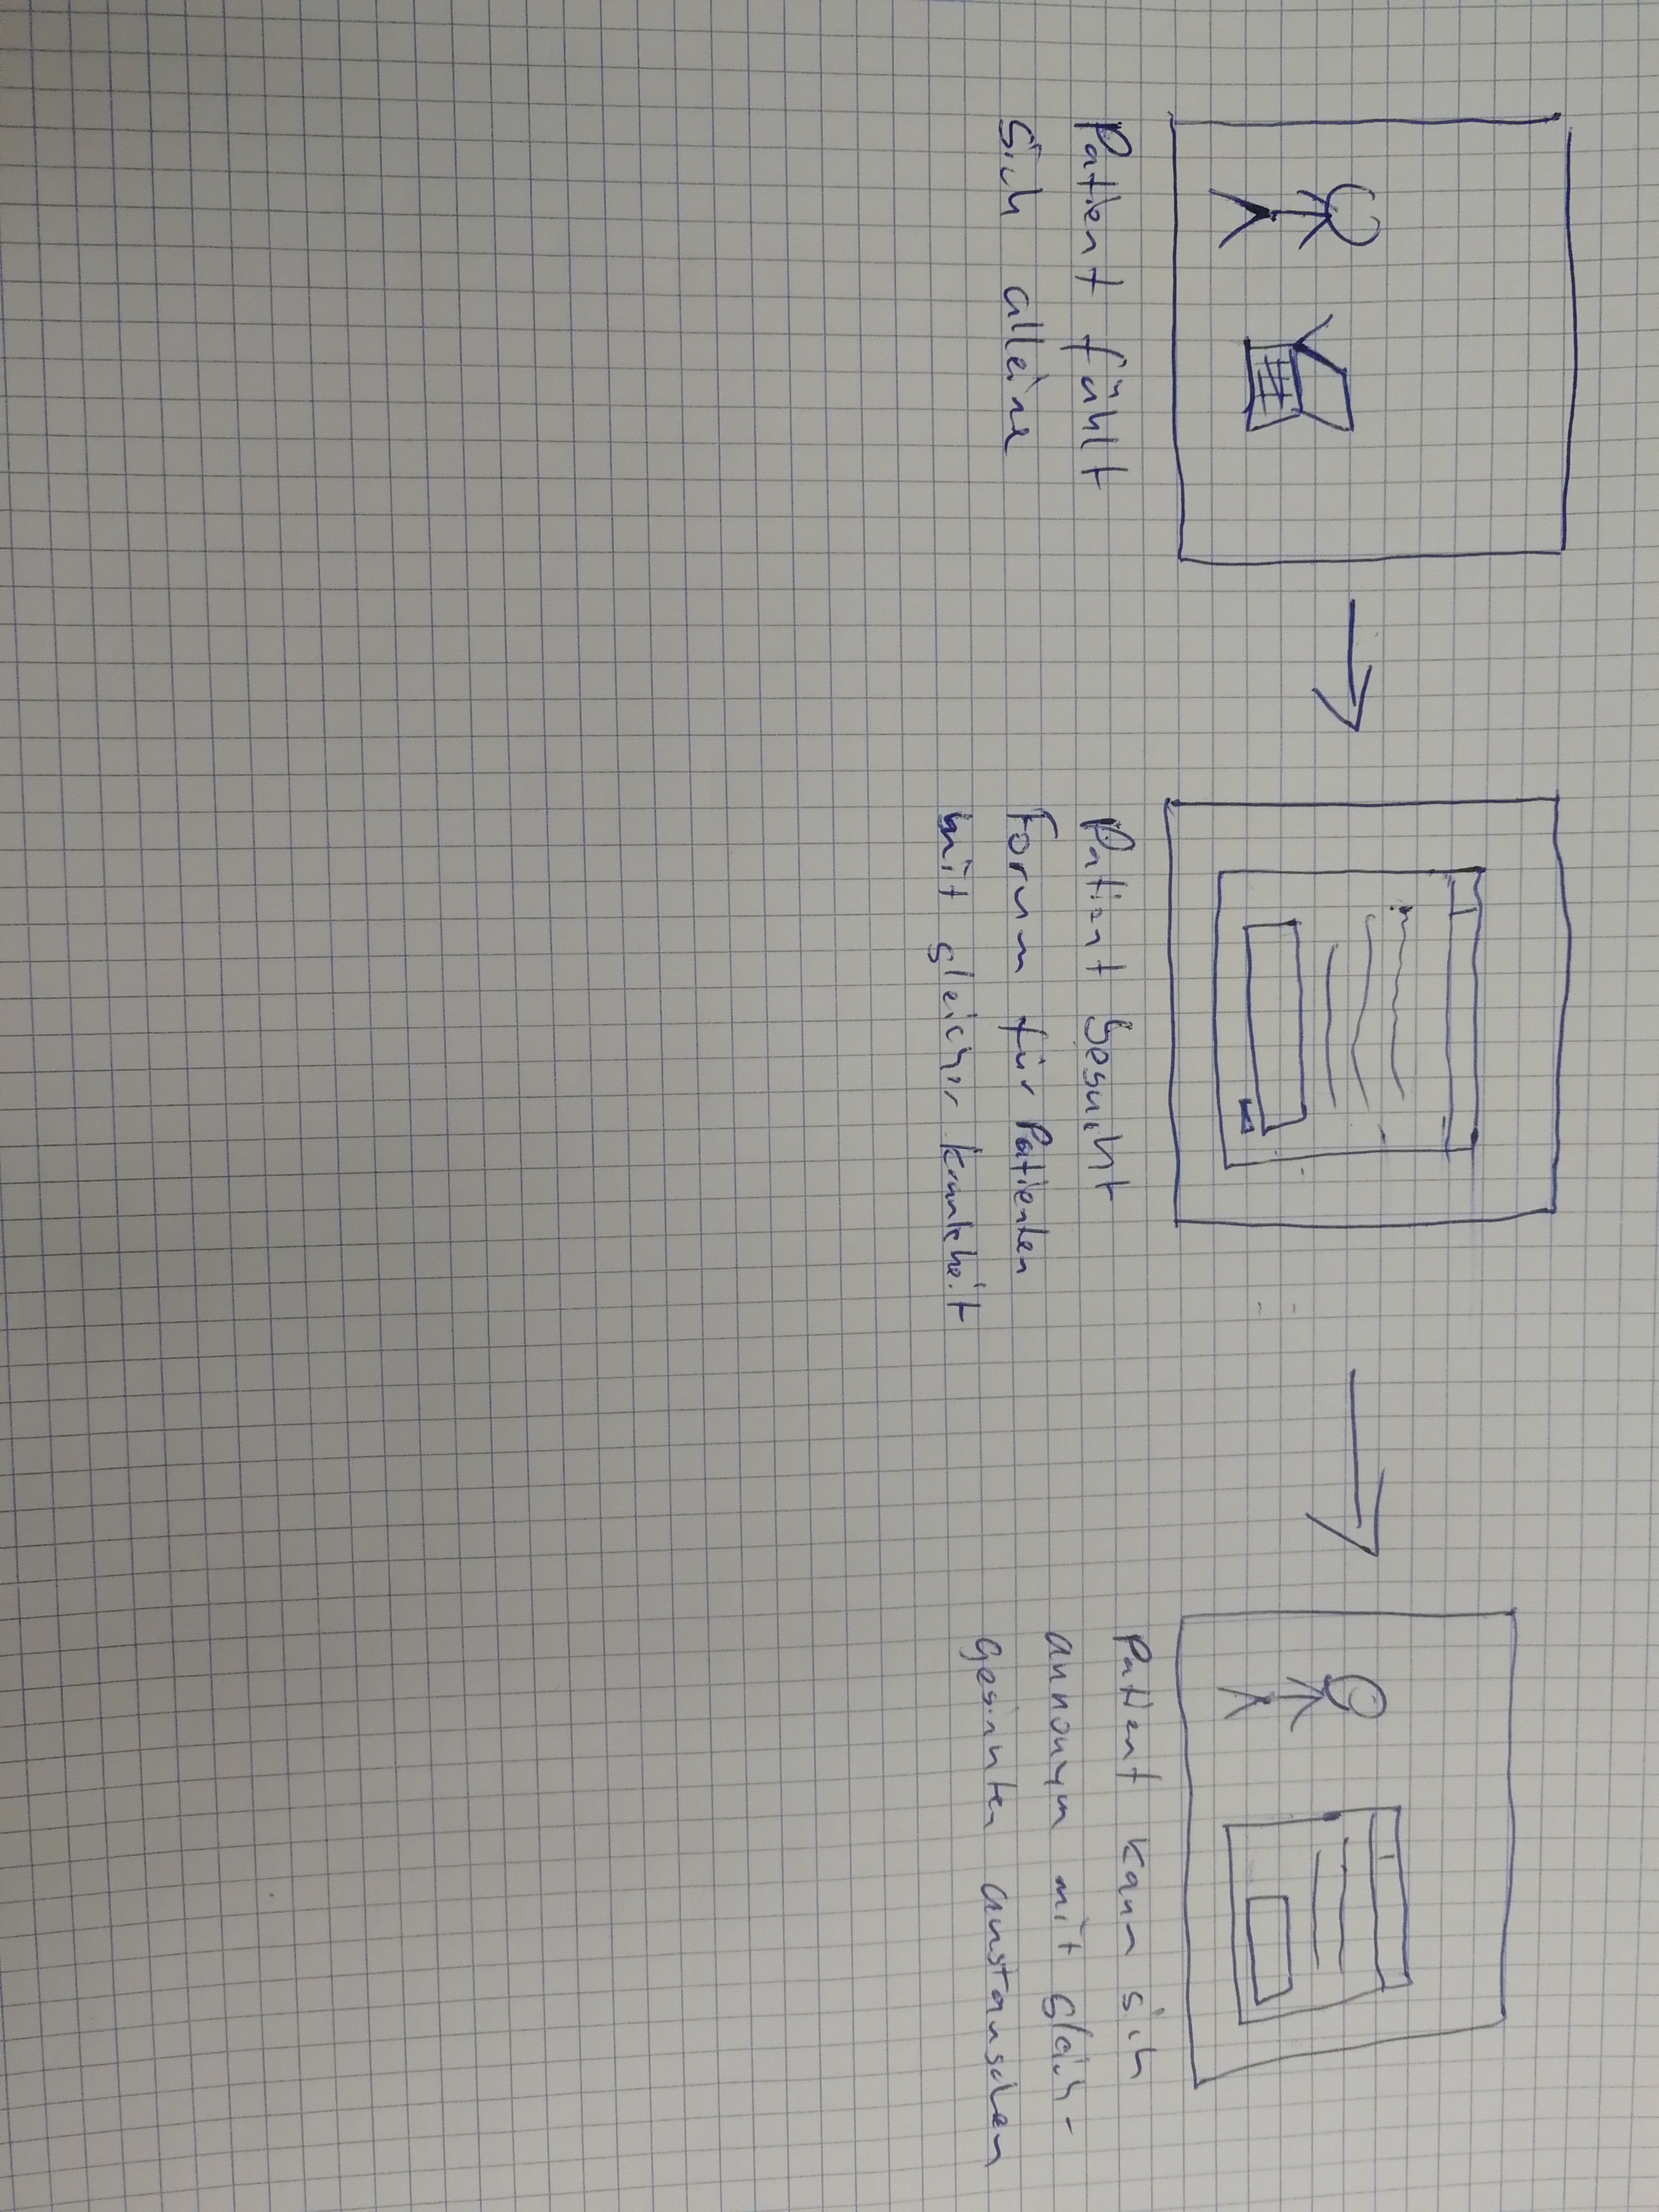 Patient fühlt
sich alleine
Patient besucht
Forum für Patienten
mit gleicher krankheit
Patient kann sich
annonym mit gleich-
gesinnten austauschen